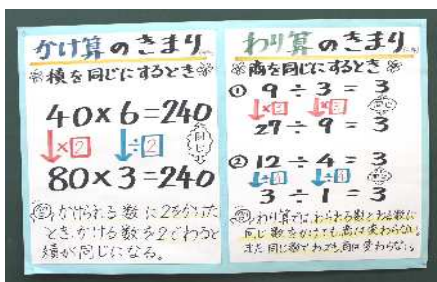 かけ算のきまり
※積を同じにするとき※
40×6=240
×2 ÷2 同じ
80×3=240
かけられる数に2をかけた
とき、かける数を2でわると
積が同じになる。
わり算のきまり
※商を同じにするとき※
① 9÷3=3
×3 ×3 同じ
27÷9=3
② 12÷4=3
÷4 ÷4
3÷1=3
わり算では、わられる数とわる数に
同じ数をかけても、商は変わらない。
また同じ数でわっても、商は変わらない。